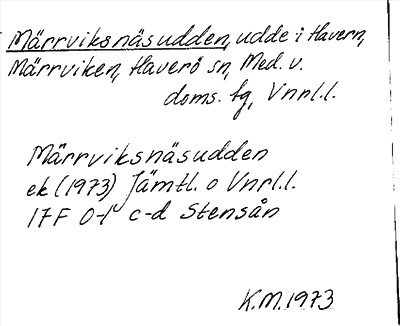 Märrviksnäsudden, udde i Havern,
Märrviken, Haverö sn, Med. v.
doms. fg, Vnrl.l.
Märrviksnäsudden
ek (1973) Jämtl. o Vnrl.l.
17F 0-1 c-d Stensån
K.M. 1973